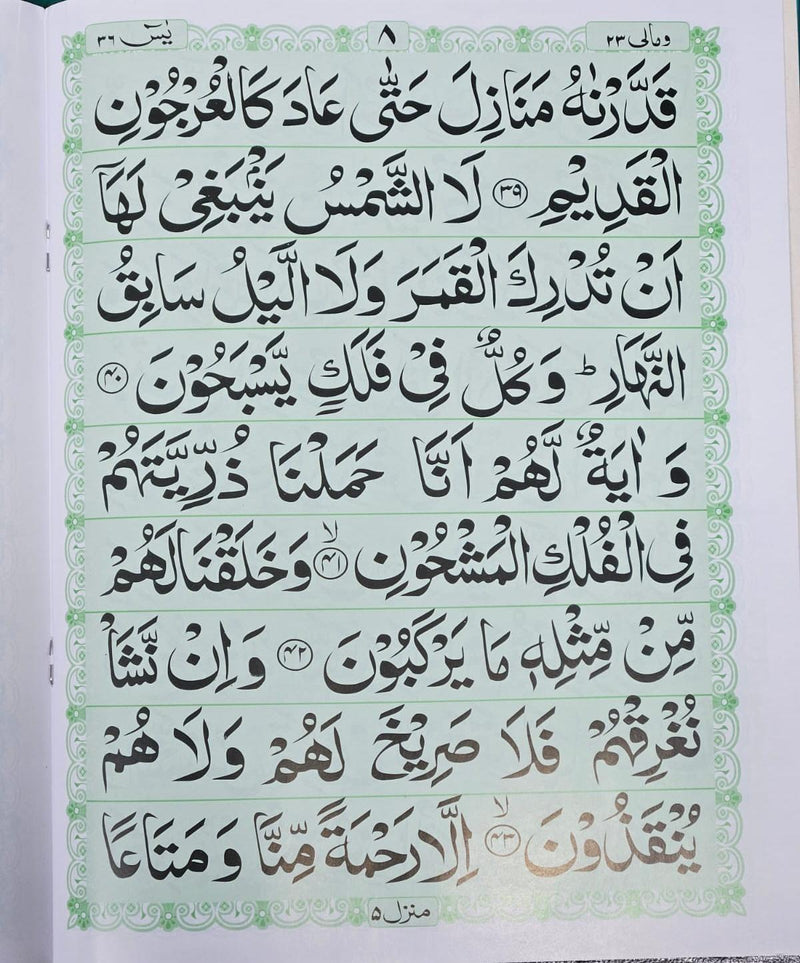 یٰسٓ ۳۶ ۸ ومالی ۲۳
قَدَّرْنٰهُ مَنَازِلَ حَتّٰى عَادَ كَالْعُرْجُوْنِ
الْقَدِيْمِ ﴿۳۹﴾ لَا الشَّمْسُ يَنْۢبَغِيْ لَهَاۤ
اَنْ تُدْرِكَ الْقَمَرَ وَلَا الَّيْلُ سَابِقُ
النَّهَارِ ؕ وَكُلٌّ فِيْ فَلَكٍ يَّسْبَحُوْنَ ﴿۴۰﴾
وَاٰيَةٌ لَّهُمْ اَنَّا حَمَلْنَا ذُرِّيَّتَهُمْ
فِي الْفُلْكِ الْمَشْحُوْنِ ﴿۴۱﴾ۙ وَخَلَقْنَا لَهُمْ
مِّنْ مِّثْلِهٖ مَا يَرْكَبُوْنَ ﴿۴۲﴾ وَاِنْ نَّشَاْ
نُغْرِقْهُمْ فَلَا صَرِيْخَ لَهُمْ وَلَا هُمْ
يُنْقَذُوْنَ ﴿۴۳﴾ۙ اِلَّا رَحْمَةً مِّنَّا وَمَتَاعًا
منزل ۵